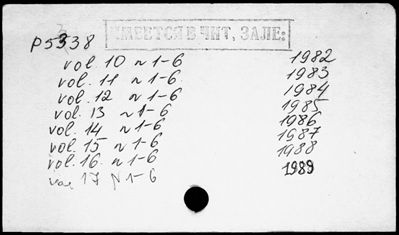 ИМЕЕТСЯ В ЧИТ, ЗАЛЕ:
P5338
vol 10 N 1-6 1982
vol. 11 N 1-6 1983
vol. 12 N 1-6 1984
vol. 13 N 1-6 1985
vol. 14 N 1-6 1986
vol. 15 N 1-6 1987
vol. 16. N 1-6 1988
vol 17 N 1-6 1989